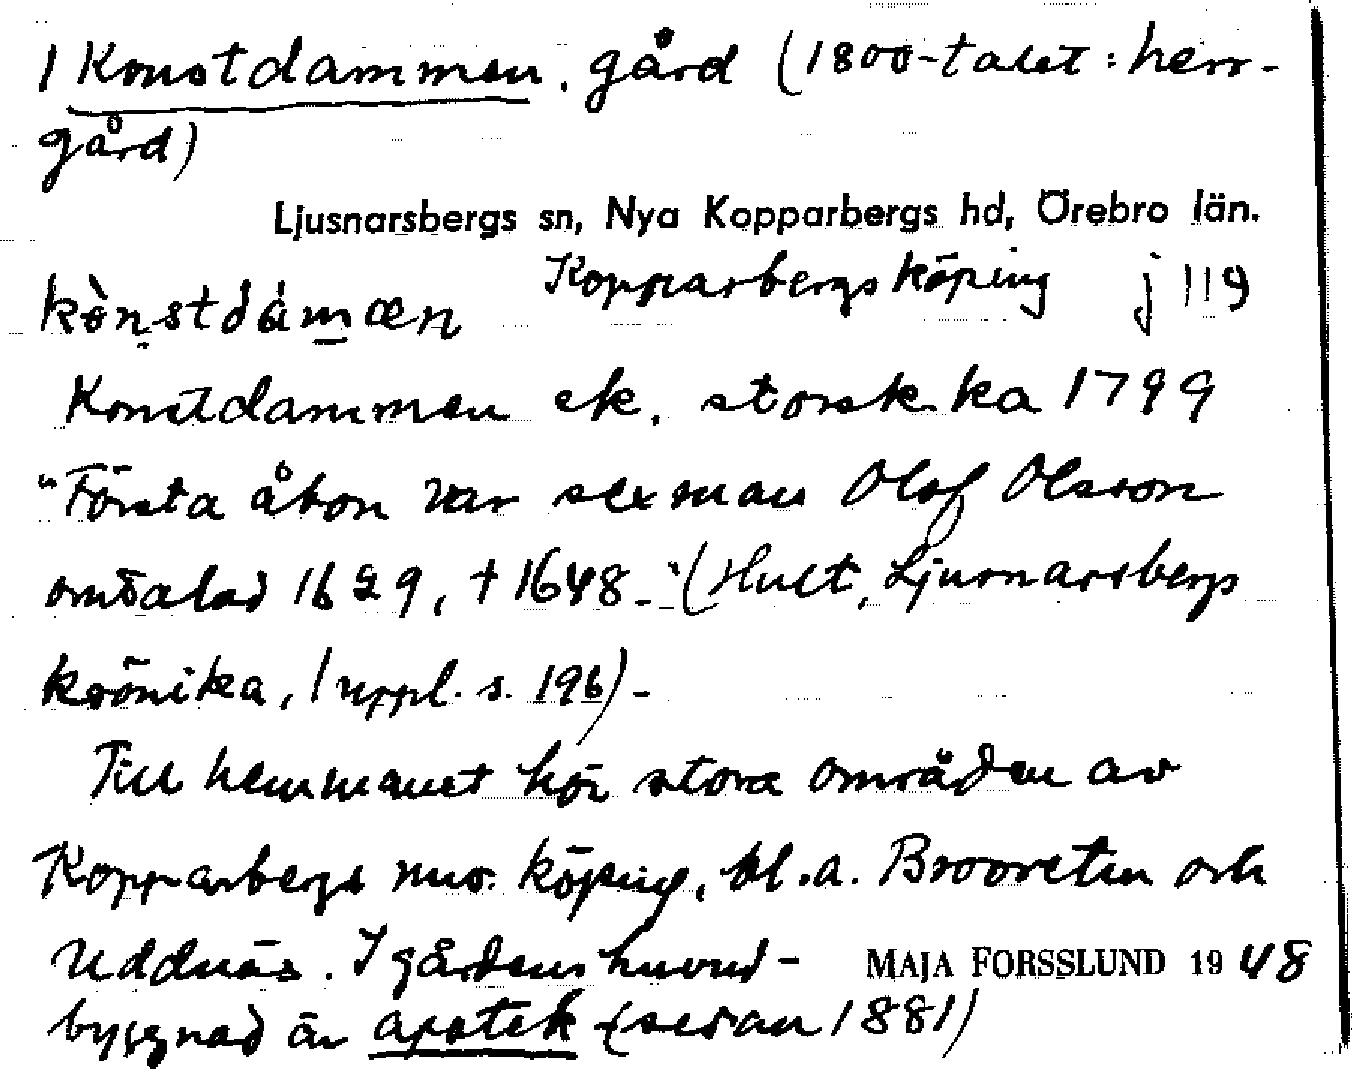 1 Konstdammen, gård (1800-talet: herr-
gård)
Ljusnarsbergs sn, Nya Kopparbergs hd, Örebro län.
Kopparbergs köping j 119
kònstdámæn
Konstdammen ek. storsk. ka 1799
"Första åbon var sexman Olof Olsson
omtalad 1629, † 1648." (Hult, Ljusnarsbergs
krönika, 1 uppl. s. 196)-
Till hemmanet hör stora områden av
Kopparbergs nuv. köping, bl.a. Broovreten och
Uddnäs. I gårdens huvud-
MAJA FORSSLUND 1948
byggnad är apotek (sedan 1881)